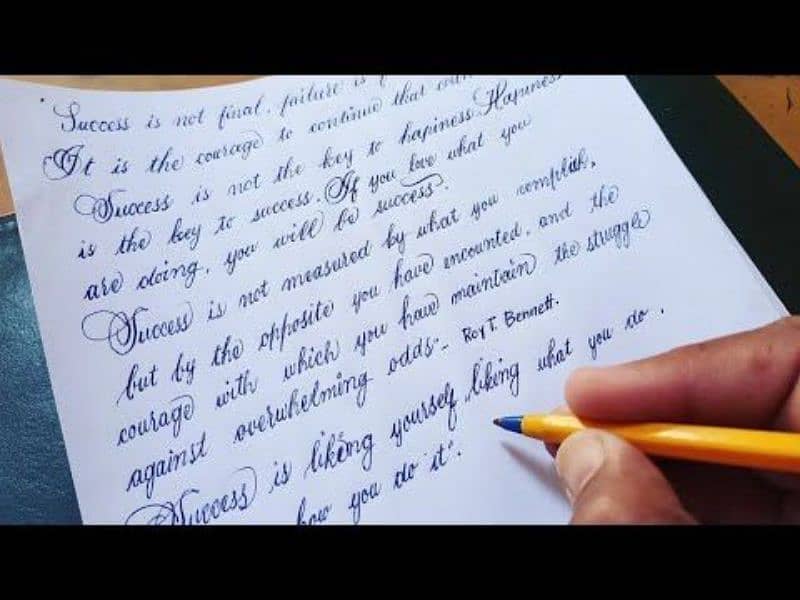 Success is not final, failure is
It is the courage to continue that
Success is not the key to hapiness. Hapiness
is the key to success. If you love what you
are doing, you will be success.
Success is not measured by what you complish,
but by the opposite you have encounted, and the
courage with which you have maintain the struggle
against overwhelming odds"- Roy T. Bennett.
Success is liking yourself, liking what you do.
how you do it".